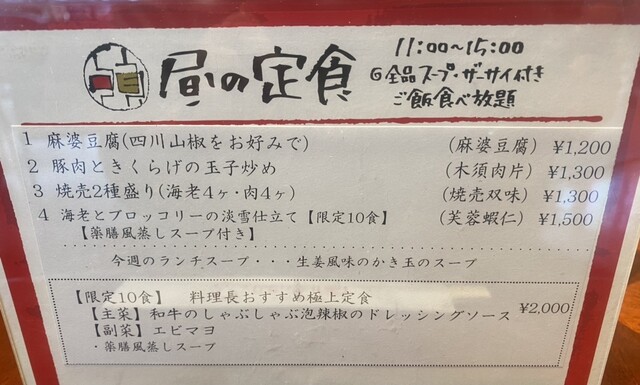 昼の定食
11:00〜15:00
全品スープ・ザーサイ付き
ご飯食べ放題
1 麻婆豆腐(四川山椒をお好みで) (麻婆豆腐) ¥1,200
2 豚肉ときくらげの玉子炒め (木須肉片) ¥1,300
3 焼売2種盛り(海老4ヶ・肉4ヶ) (焼売双味) ¥1,300
4 海老とブロッコリーの淡雪仕立て【限定10食】 (芙蓉蝦仁) ¥1,500
【薬膳風蒸しスープ付き】
今週のランチスープ・・・生姜風味のかき玉のスープ
【限定10食】 料理長おすすめ極上定食
【主菜】和牛のしゃぶしゃぶ泡辣椒のドレッシングソース ¥2,000
【副菜】エビマヨ
・薬膳風蒸しスープ